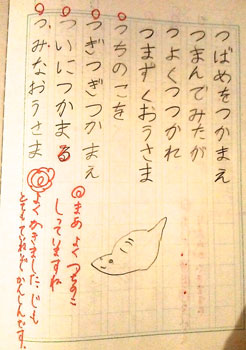 つばめをつかまえ
つまんでみたが
つよくつつかれ
つまずくおうさま
つちのこを
つぎつぎつかまえ
ついにつかまる
つみなおうさま
まめ よく つちのこ
しっていますね
よくかきました。じも
ていねいでかんしんです。